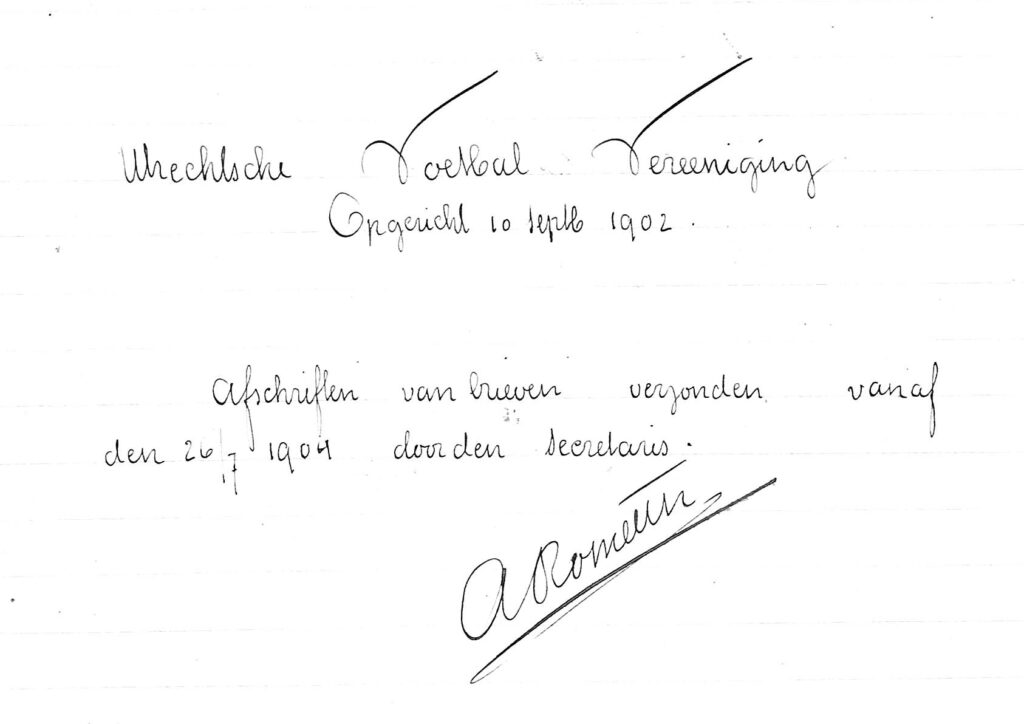 Utrechtsche Voetbal Vereeniging
Opgericht 10 Septb 1902.
Afschriften van brieven verzonden vanaf
den 26/7 1904 door den secretaris.